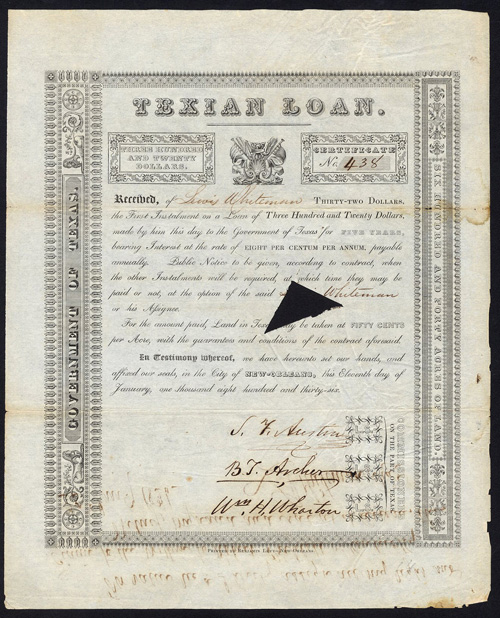 TEXIAN LOAN.
THREE HUNDRED
AND TWENTY
DOLLARS.
CERTIFICATE
No. 438
Received, of Lewis Whiteman THIRTY-TWO DOLLARS,
the First Instalment on a Loan of Three Hundred and Twenty Dollars,
made by him this day to the Government of Texas for FIVE YEARS,
bearing Interest at the rate of EIGHT PER CENTUM PER ANNUM, payable
annually. Public Notice to be given, according to contract, when
the other Instalments will be required, at which time they may be
paid or not, at the option of the said Whiteman
or his Assignee.
For the amount paid, Land in may be taken at FIFTY CENTS
per Acre, with the guarantees and conditions of the contract aforesaid.
In Testimony whereof, we have hereunto set our hands, and
affixed our seals, in the City of NEW-ORLEANS, this Eleventh day of
January, one thousand eight hundred and thirty-six.
S. F. Austin
B. T. Archer
Wm H. Wharton
GOVERNMENT OF TEXAS.
SIX HUNDRED AND FORTY ACRES OF LAND.
COMMISSIONERS
ON THE PART OF TEXAS